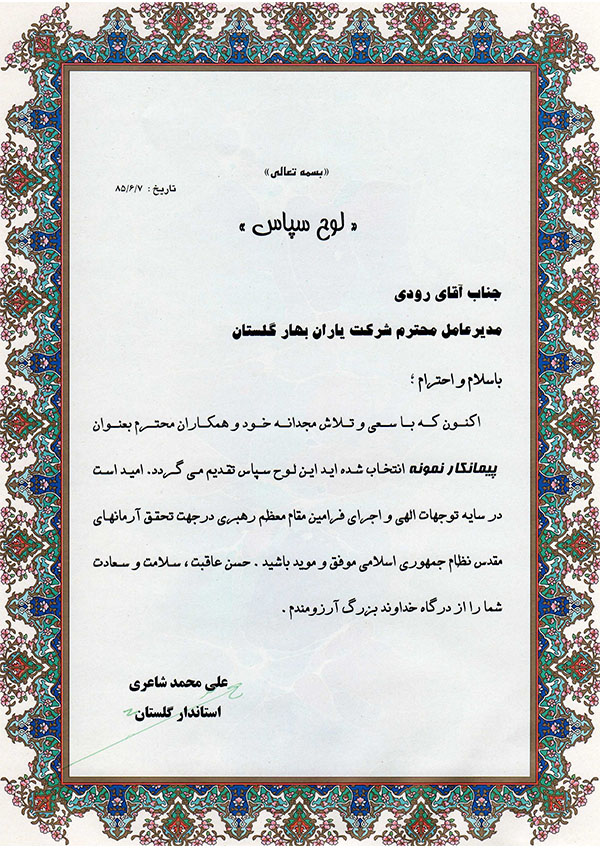 «بسمه تعالی»
تاریخ : ۸۵/۶/۷
« لوح سپاس »
جناب آقای رودی
مدیرعامل محترم شرکت یاران بهار گلستان
باسلام و احترام ؛
اکنون که با سعی و تلاش مجدانه خود و همکاران محترم بعنوان
پیمانکار نمونه انتخاب شده اید این لوح سپاس تقدیم می گردد. امید است
در سایه توجهات الهی و اجرای فرامین مقام معظم رهبری در جهت تحقق آرمانهای
مقدس نظام جمهوری اسلامی موفق و موید باشید . حسن عاقبت ، سلامت و سعادت
شما را از درگاه خداوند بزرگ آرزومندم .
علی محمد شاعری
استاندار گلستان